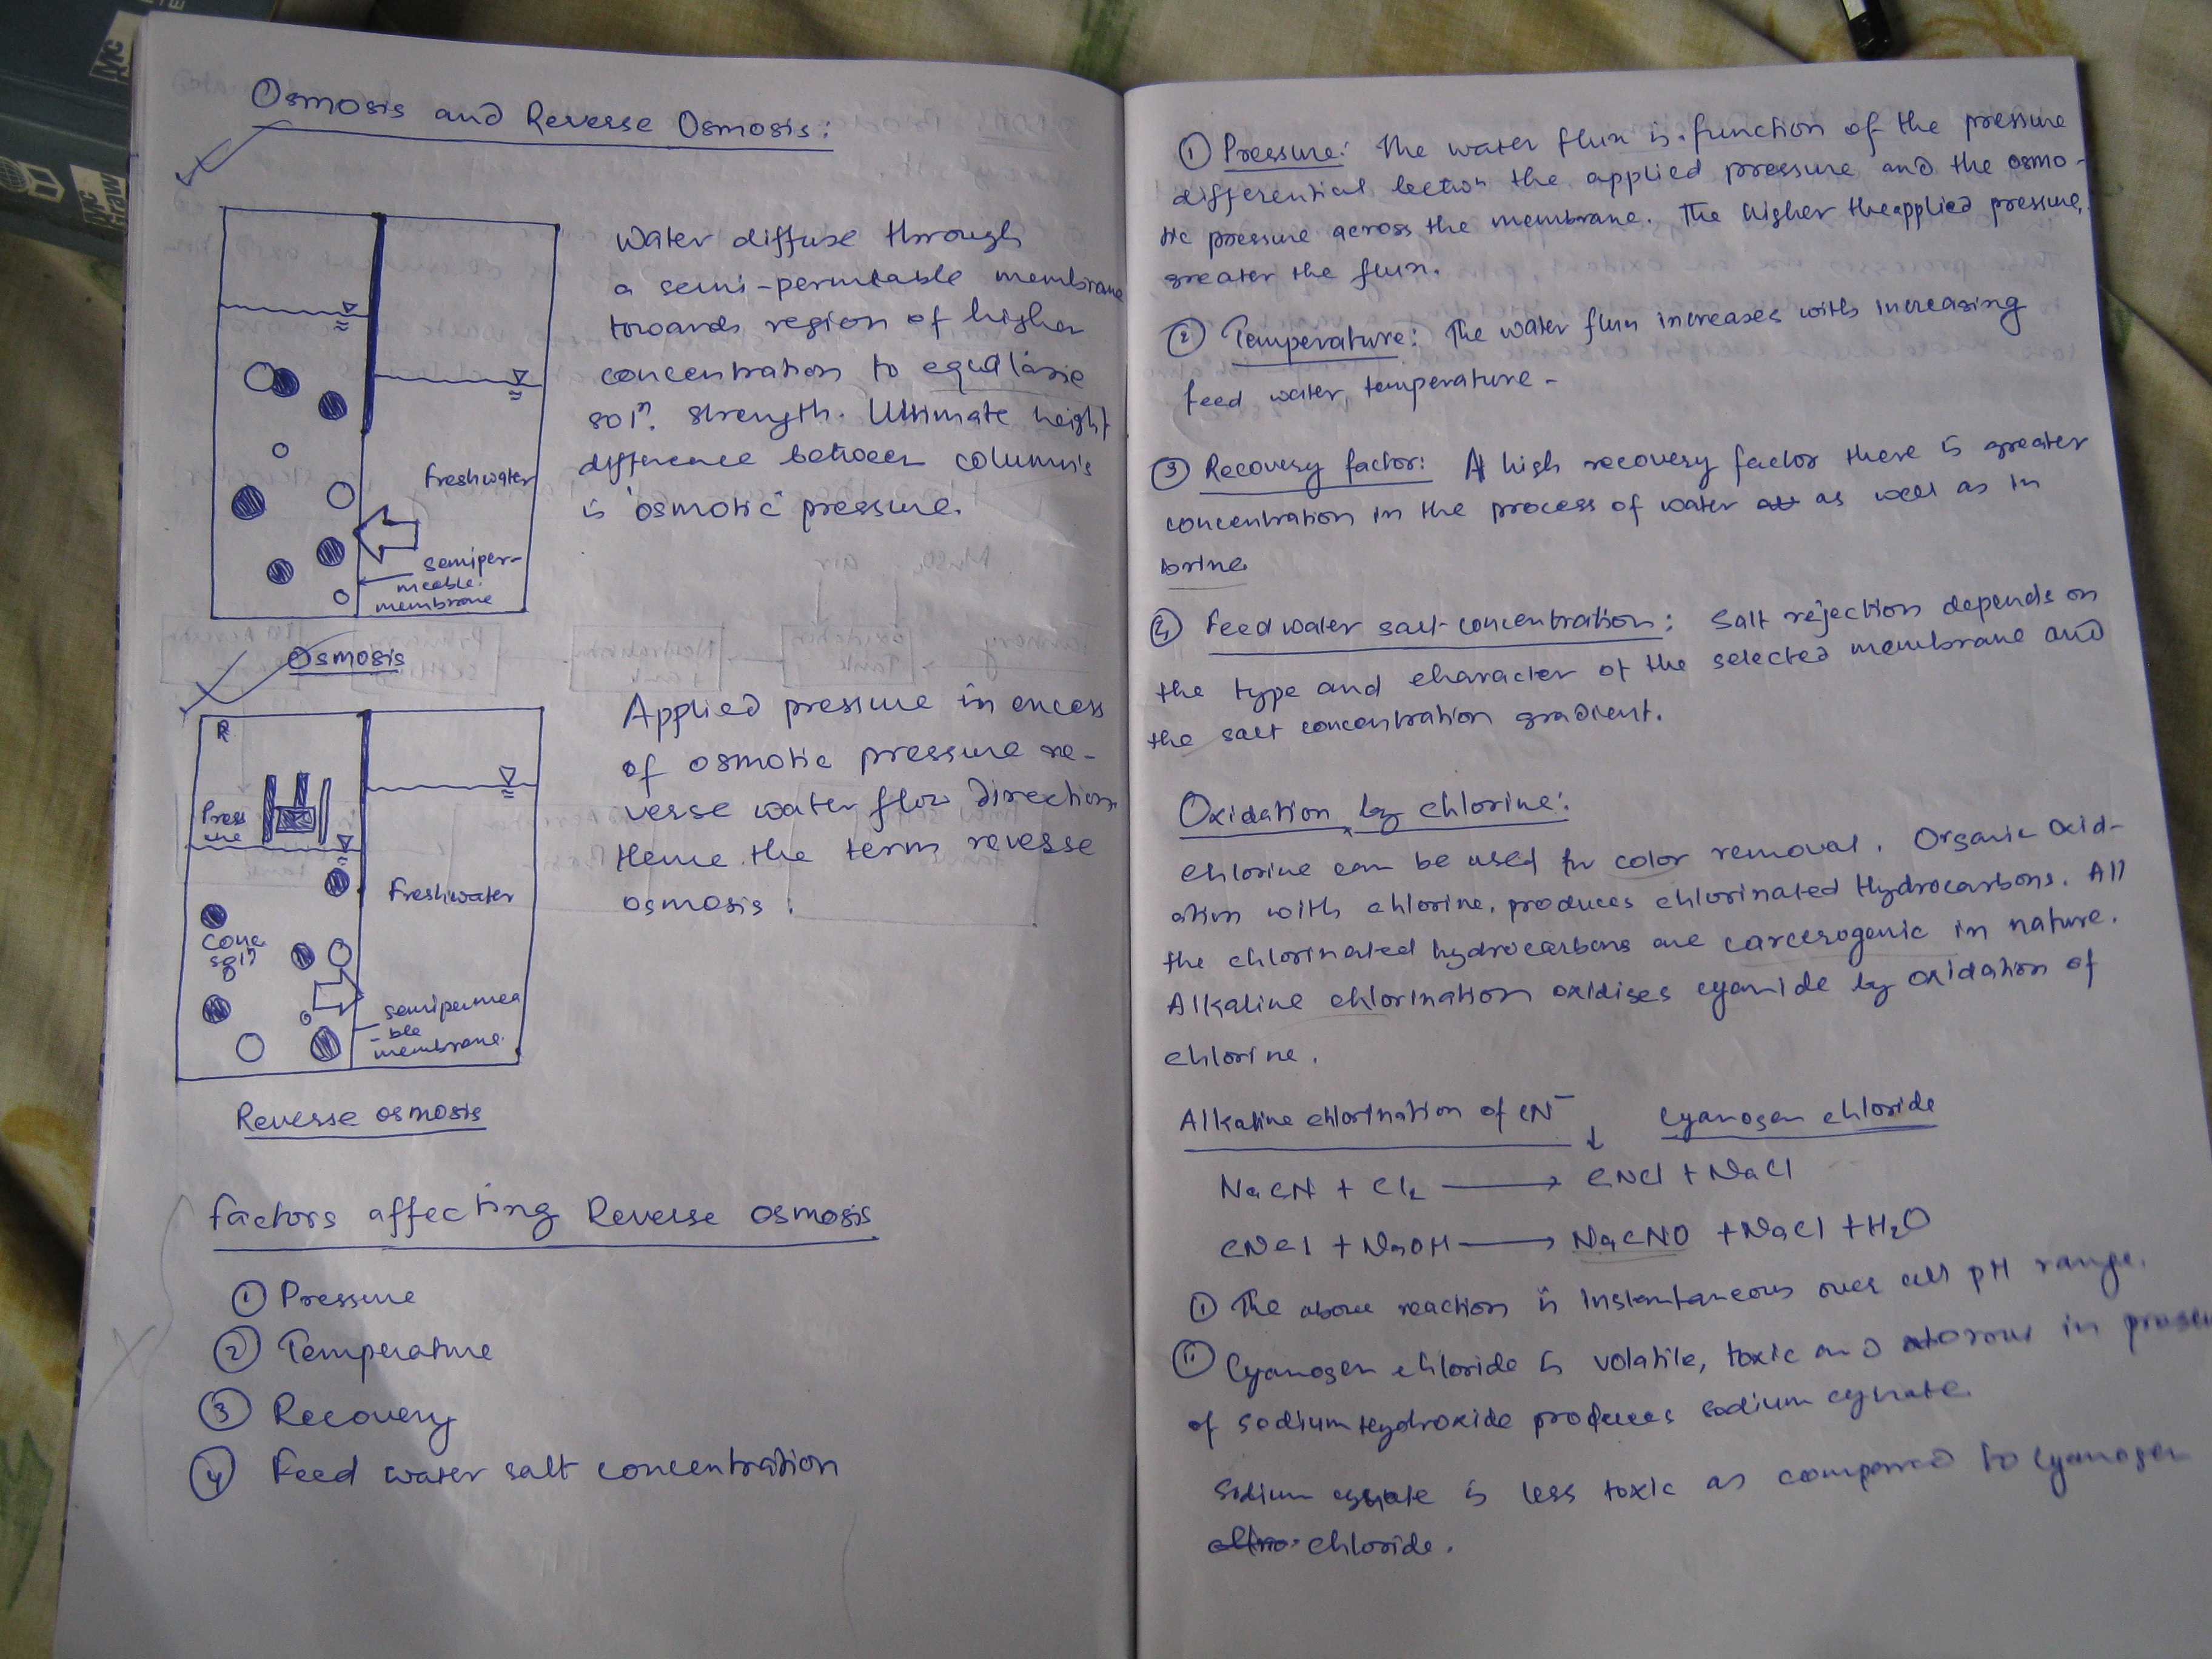 Osmosis and Reverse Osmosis:
Freshwater
semiper-
meable
membrane
Osmosis
Water diffuse through
a semi-permeable membrane
towards region of higher
concentration to equalise
solⁿ. strength. Ultimate height
difference between columns
is "osmotic" pressure.
R
Press
ure
Freshwater
Conc
solⁿ
semipermea
-ble
membrane.
Reverse osmosis
Applied pressure in excess
of osmotic pressure re-
verse water flow direction.
Hence the term reverse
osmosis.
Factors affecting Reverse osmosis
① Pressure
② Temperature
③ Recovery
④ Feed water salt concentration
① Pressure: The water flux is function of the pressure
differential the applied pressure and the osmo-
tic pressure across the membrane. The higher the applied pressure,
greater the flux.
② Temperature: The water flux increases with increasing
feed water temperature-
③ Recovery factor: At high recovery factor there is greater
concentration in the process of water as well as in
brine
④ Feed water salt concentration: Salt rejection depends on
the type and character of the selected membrane and
the salt concentration gradient.
Oxidation by chlorine:
Chlorine can be used for color removal. Organic oxid-
ation with chlorine, produces chlorinated Hydrocarbons. All
the chlorinated hydrocarbons are carcerogenic in nature.
Alkaline chlorination oxidises cyanide by oxidation of
chlorine.
Alkaline chlorination of CN⁻ ↓ Cyanogen chloride
NaCN + Cl₂ ⟶ CNCl + NaCl
CNCl + NaOH ⟶ NaCNO + NaCl + H₂O
① The above reaction is instantaneous over all pH range.
⑪ Cyanogen chloride is volatile, toxic and in
of sodium Hydroxide produces sodium cynate.
Sodium is less toxic as compared to Cyanogen
chloride.